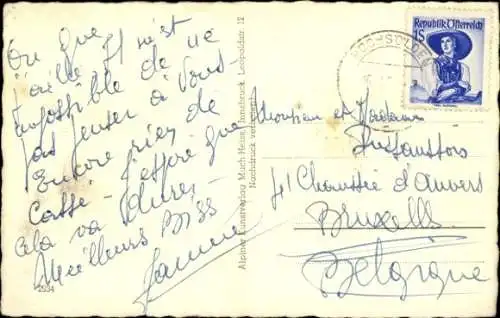 Où que j'aille il m'est
impossible de ne
pas penser à vous.
Encore rien de
cassé. J'espère que
cela va durer.
Meilleurs Biss
Alpiner Kunstverlag Much Heiss, Innsbruck, Leopoldstr. 12
Nachdruck verboten!
2934
HOCHSÖLDEN
Republik Österreich
1S
Monsieur et Madame
41 Chaussée d'Anvers
Bruxelles
Belgique